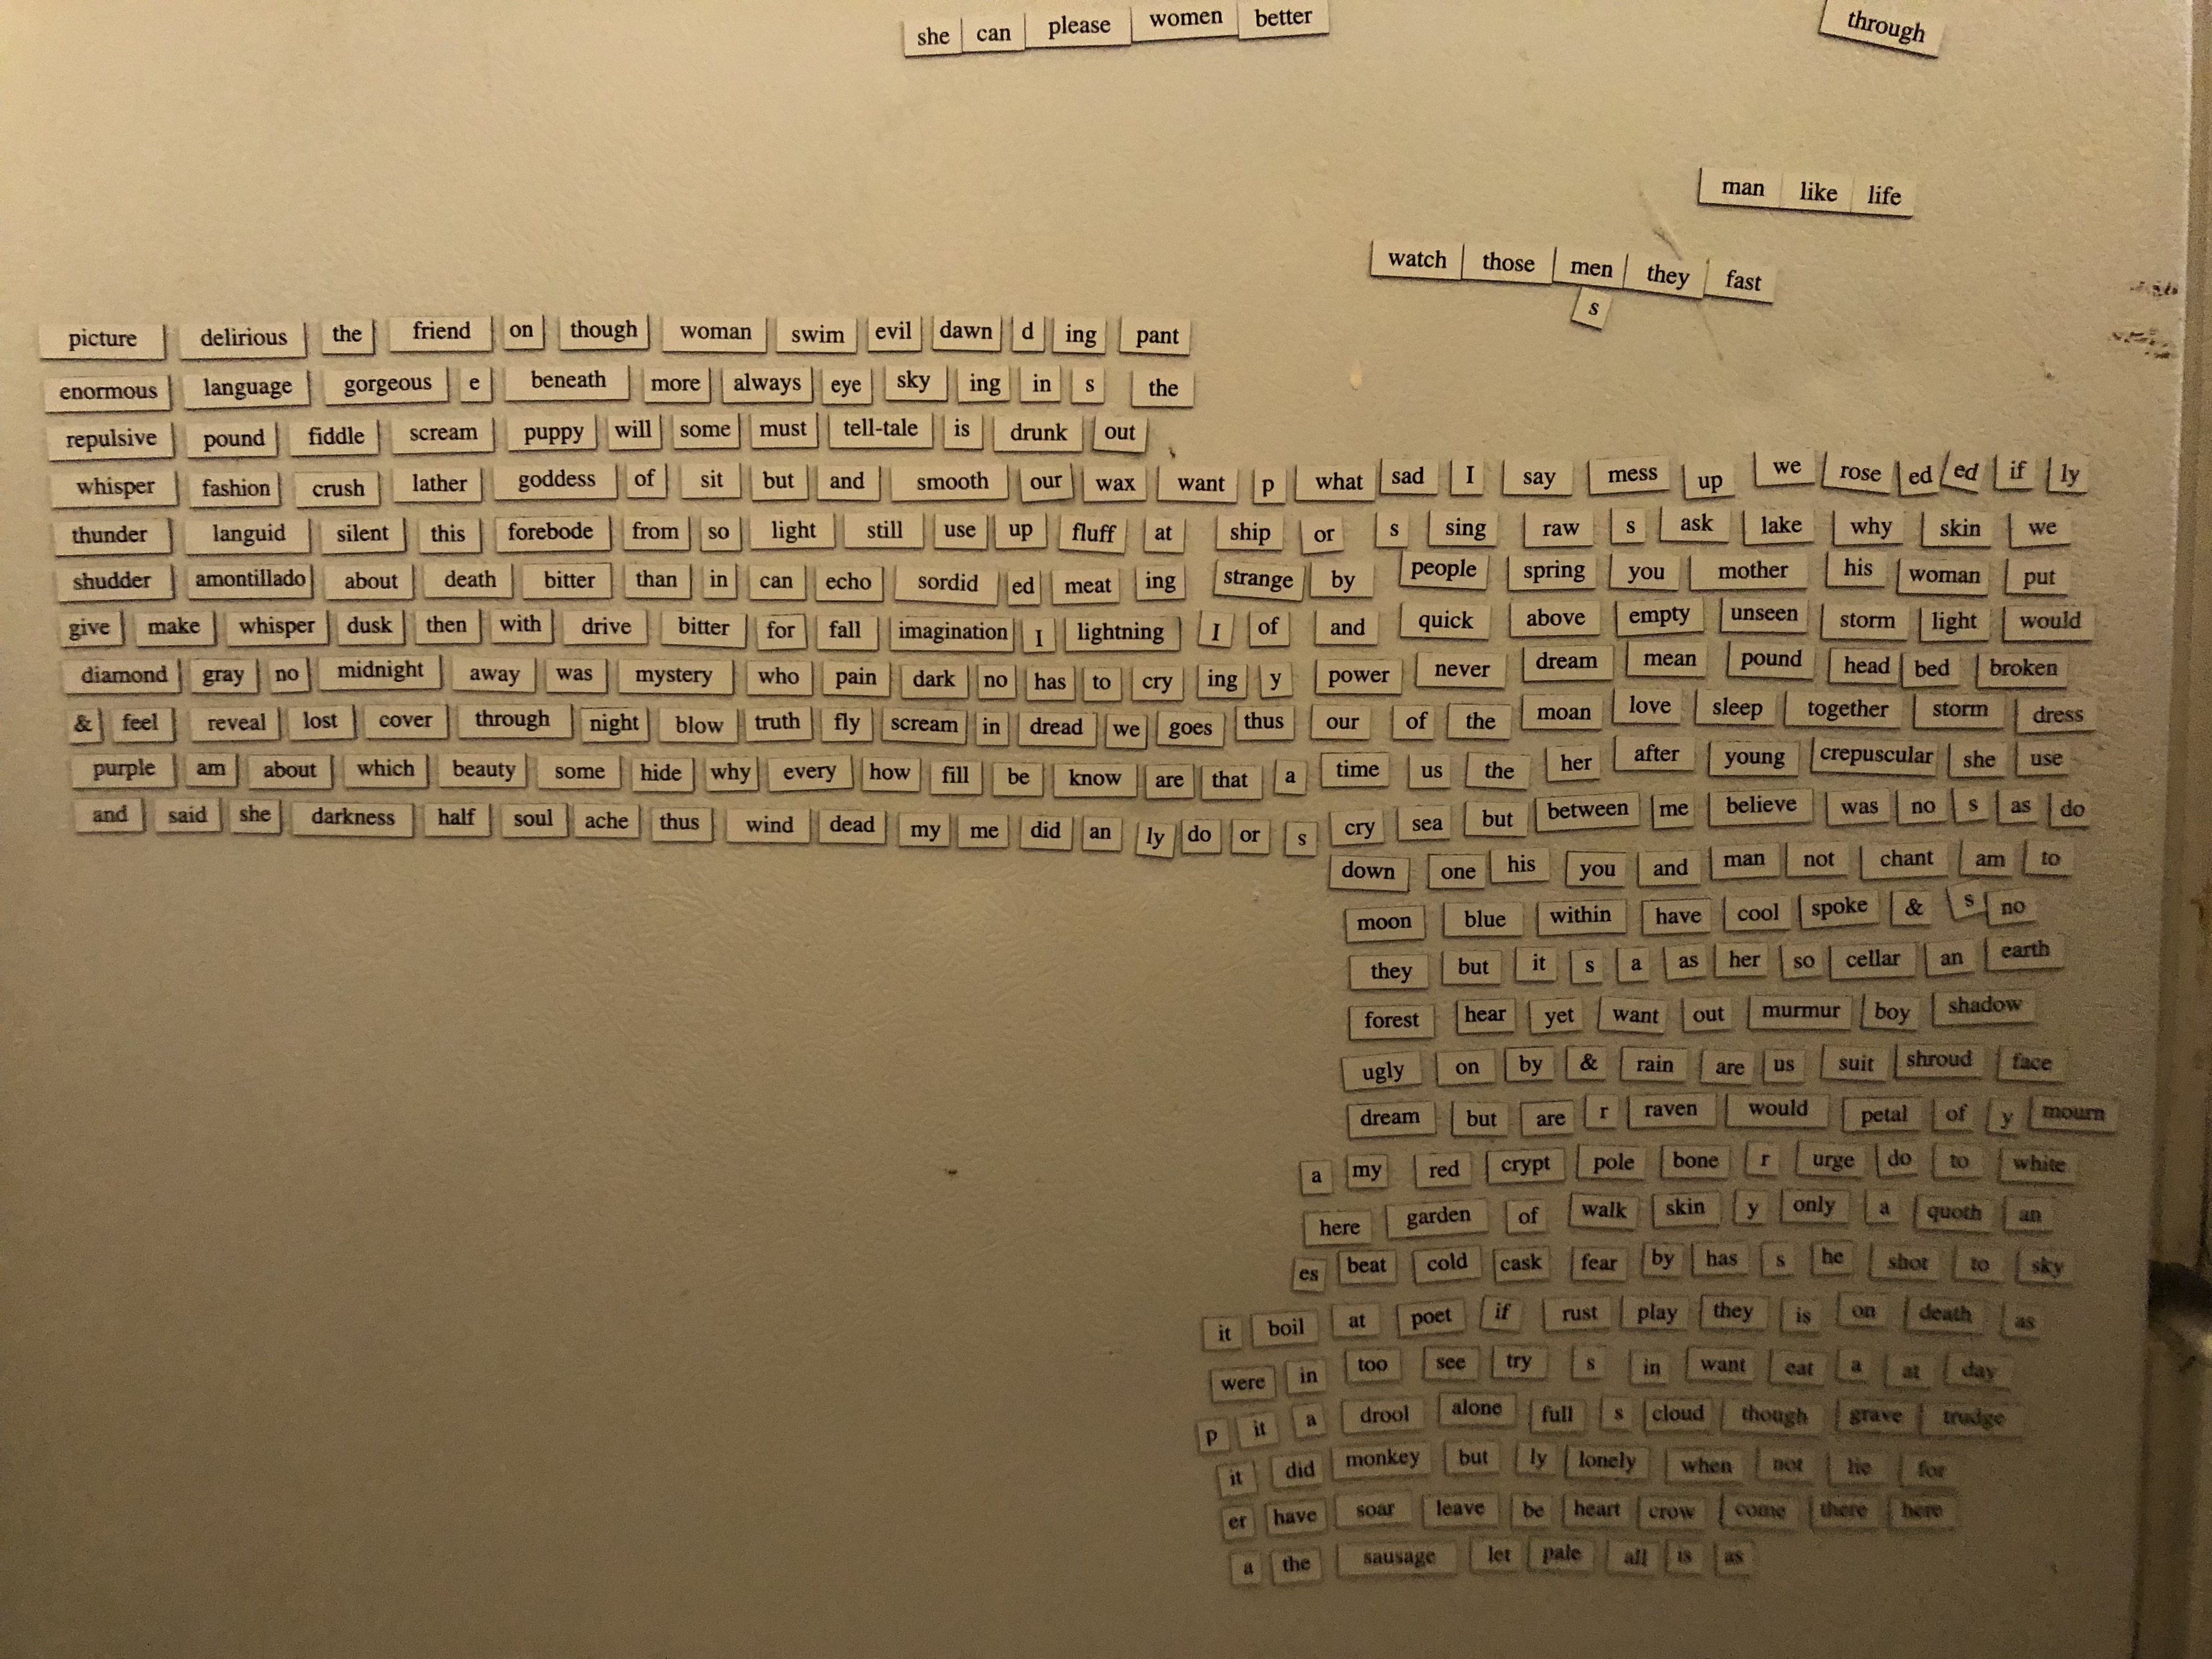 she can please women better
through
man like life
watch those men they fast
s
picture delirious the friend on though woman swim evil dawn d ing pant
enormous language gorgeous e beneath more always eye sky ing in s the
repulsive pound fiddle scream puppy will some must tell-tale is drunk out
whisper fashion crush lather goddess of sit but and smooth our wax want p what sad I say mess up we rose ed ed if ly
thunder languid silent this forebode from so light still use up fluff at ship or s sing raw s ask lake why skin we
shudder amontillado about death bitter than in can echo sordid ed meat ing strange by people spring you mother his woman put
give make whisper dusk then with drive bitter for fall imagination I lightning I of and quick above empty unseen storm light would
diamond gray no midnight away was mystery who pain dark no has to cry ing y power never dream mean pound head bed broken
& feel reveal lost cover through night blow truth fly scream in dread we goes thus our of the moan love sleep together storm dress
purple am about which beauty some hide why every how fill be know are that a time us the her after young crepuscular she use
and said she darkness half soul ache thus wind dead my me did an ly do or s cry sea but between me believe was no s as do
down one his you and man not chant am to
moon blue within have cool spoke & s no
they but it s a as her so cellar an earth
forest hear yet want out murmur boy shadow
ugly on by & rain are us suit shroud face
dream but are r raven would petal of y mourn
a my red crypt pole bone r urge do to white
here garden of walk skin y only a quoth an
es beat cold cask fear by has s he shot to sky
it boil at poet if rust play they is on death as
were in too see try s in want eat a at day
p it a drool alone full s cloud though grave trudge
it did monkey but ly lonely when not lie for
er have soar leave be heart crow come there here
a the sausage let pale all is as